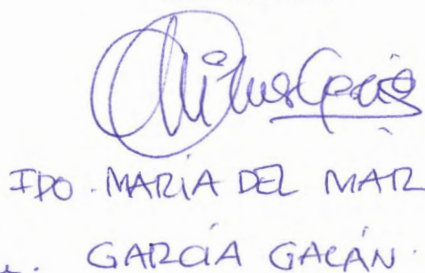 FDO. MARIA DEL MAR
GARCÍA GALÁN.